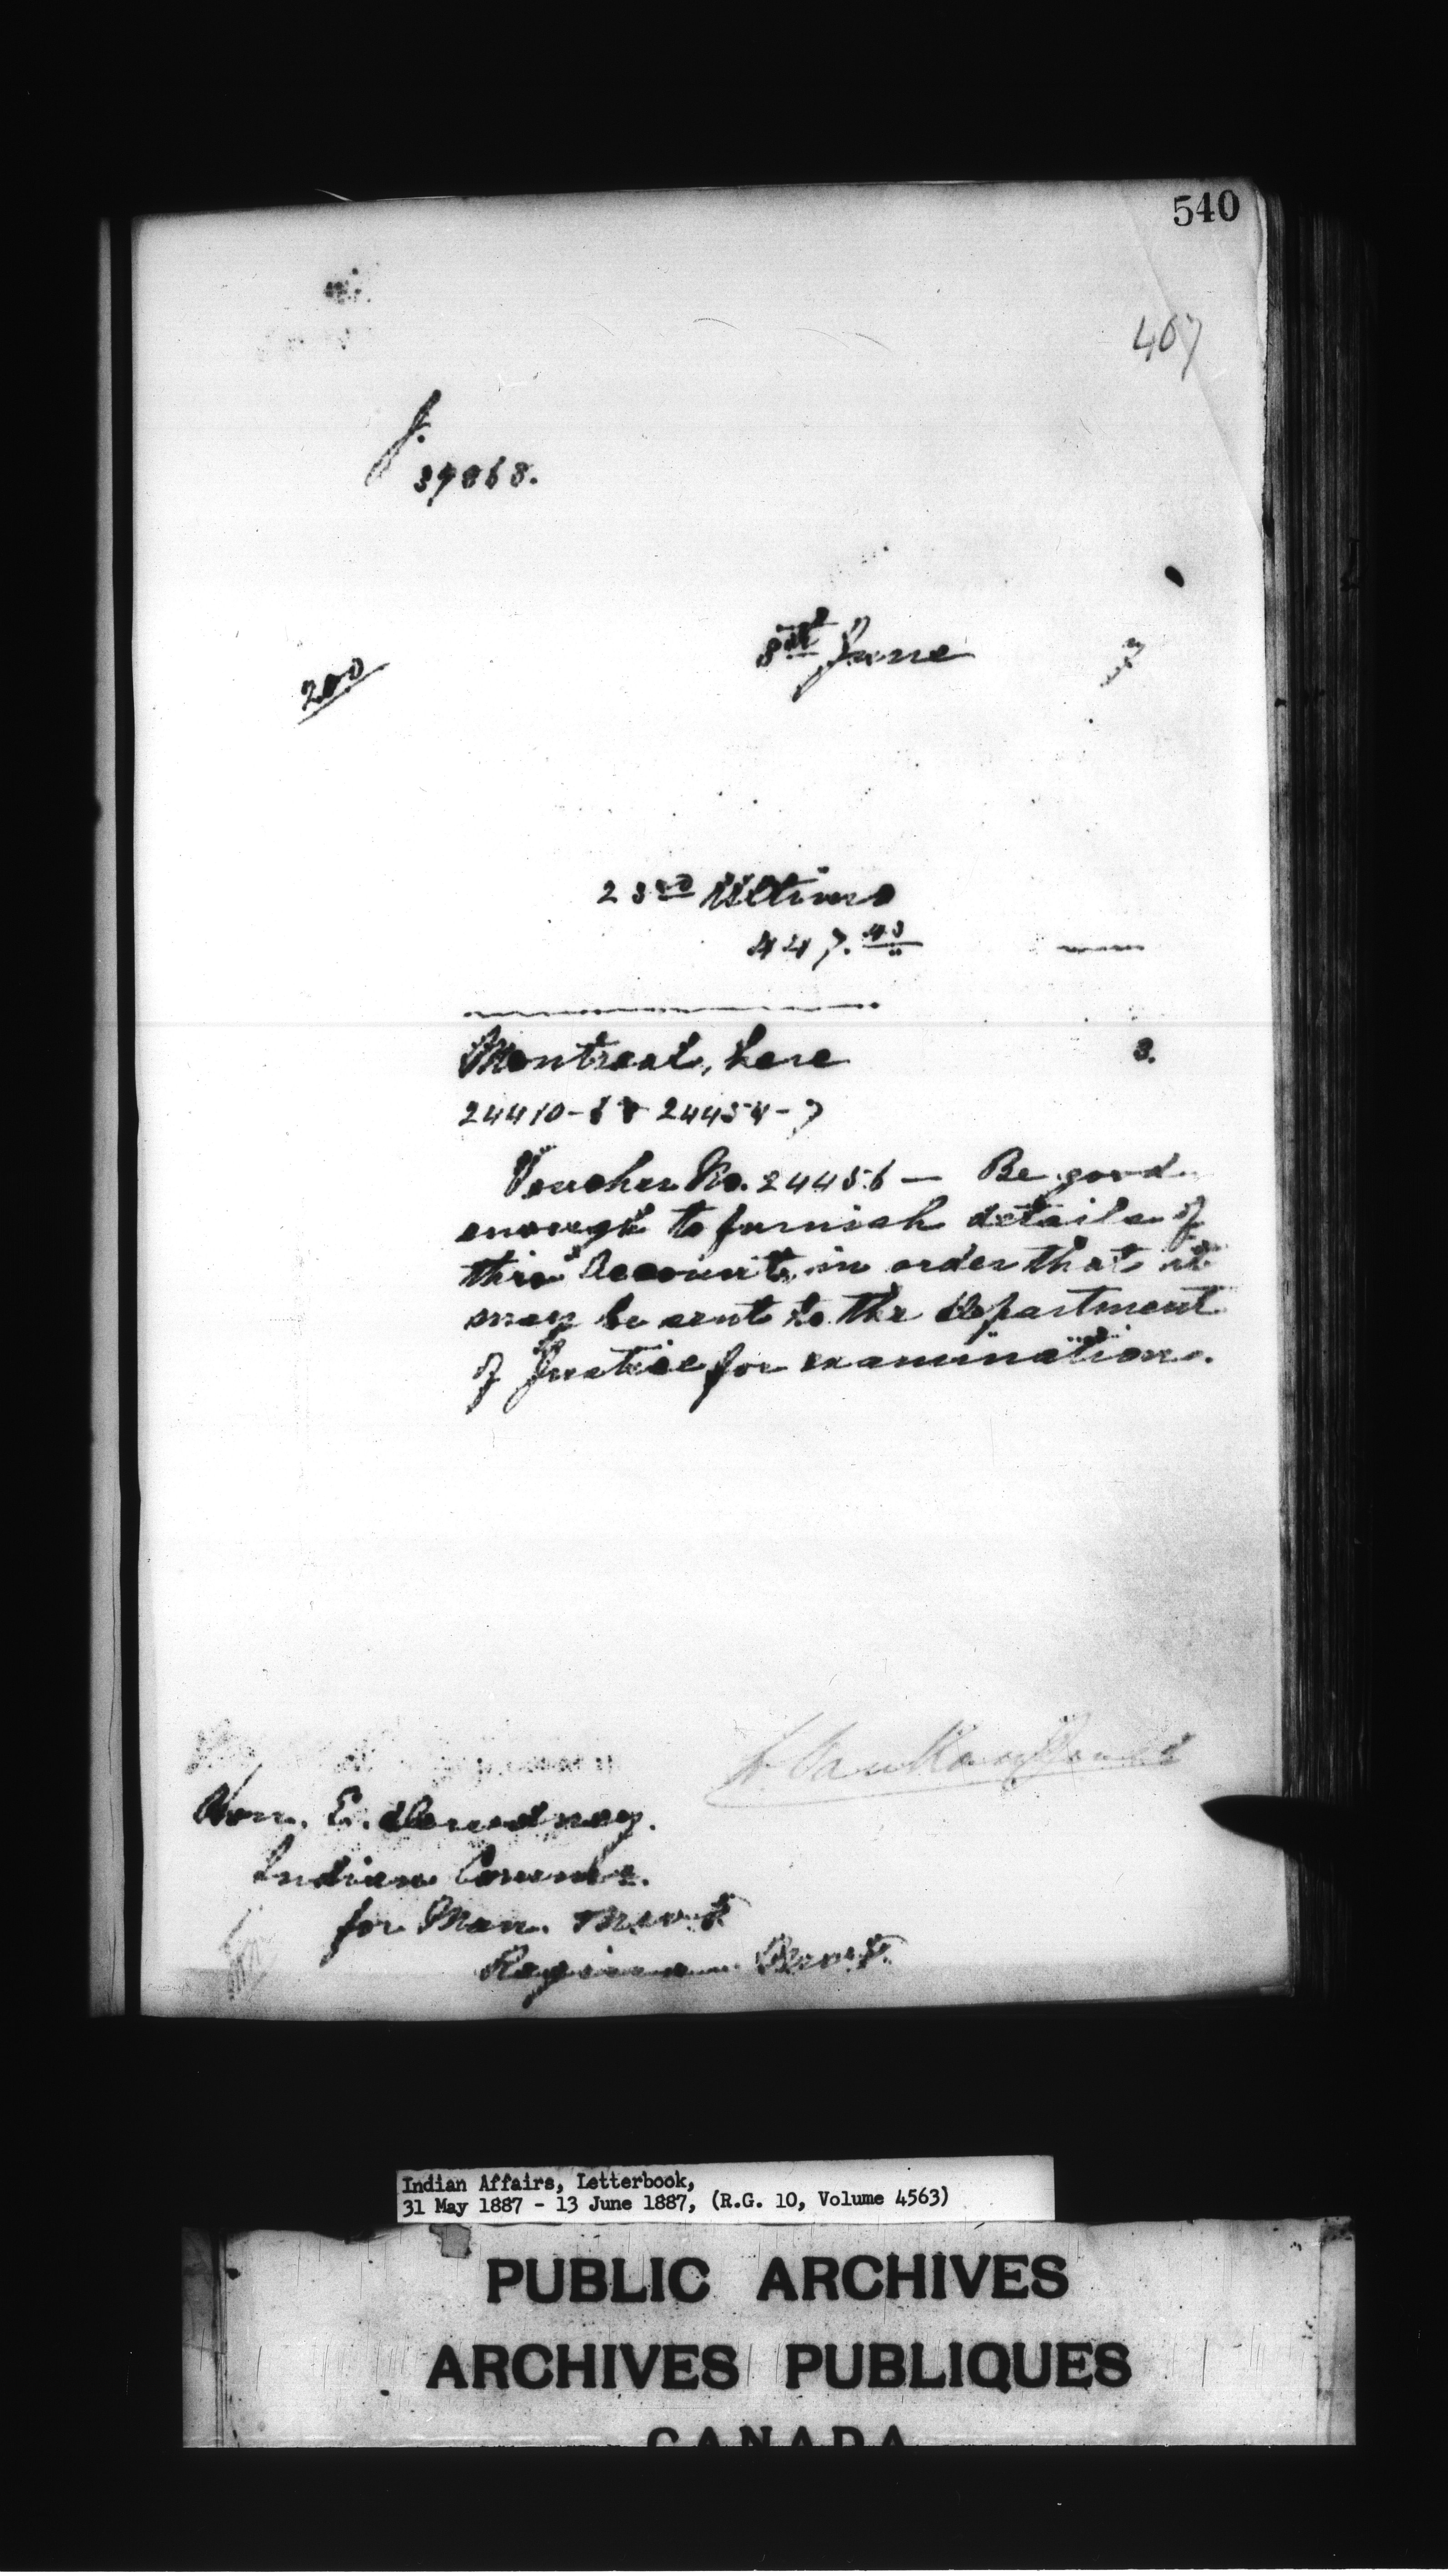 540
407
J.
39868.
8th June 7
200
23rd Ultimo
447.43
Montreal, here 3.
24410-6 & 24454-7
Voucher No. 24456 — Be good
enough to furnish details of
this Account, in order that it
may be sent to the Department
of Justice for examination.
L. VanKoughnet
Hon. E. Dewdney.
Indian Commr.
for Man. &
Regina
Indian Affairs, Letterbook,
31 May 1887 - 13 June 1887, (R.G. 10, Volume 4563)
PUBLIC ARCHIVES
ARCHIVES PUBLIQUES
CANADA